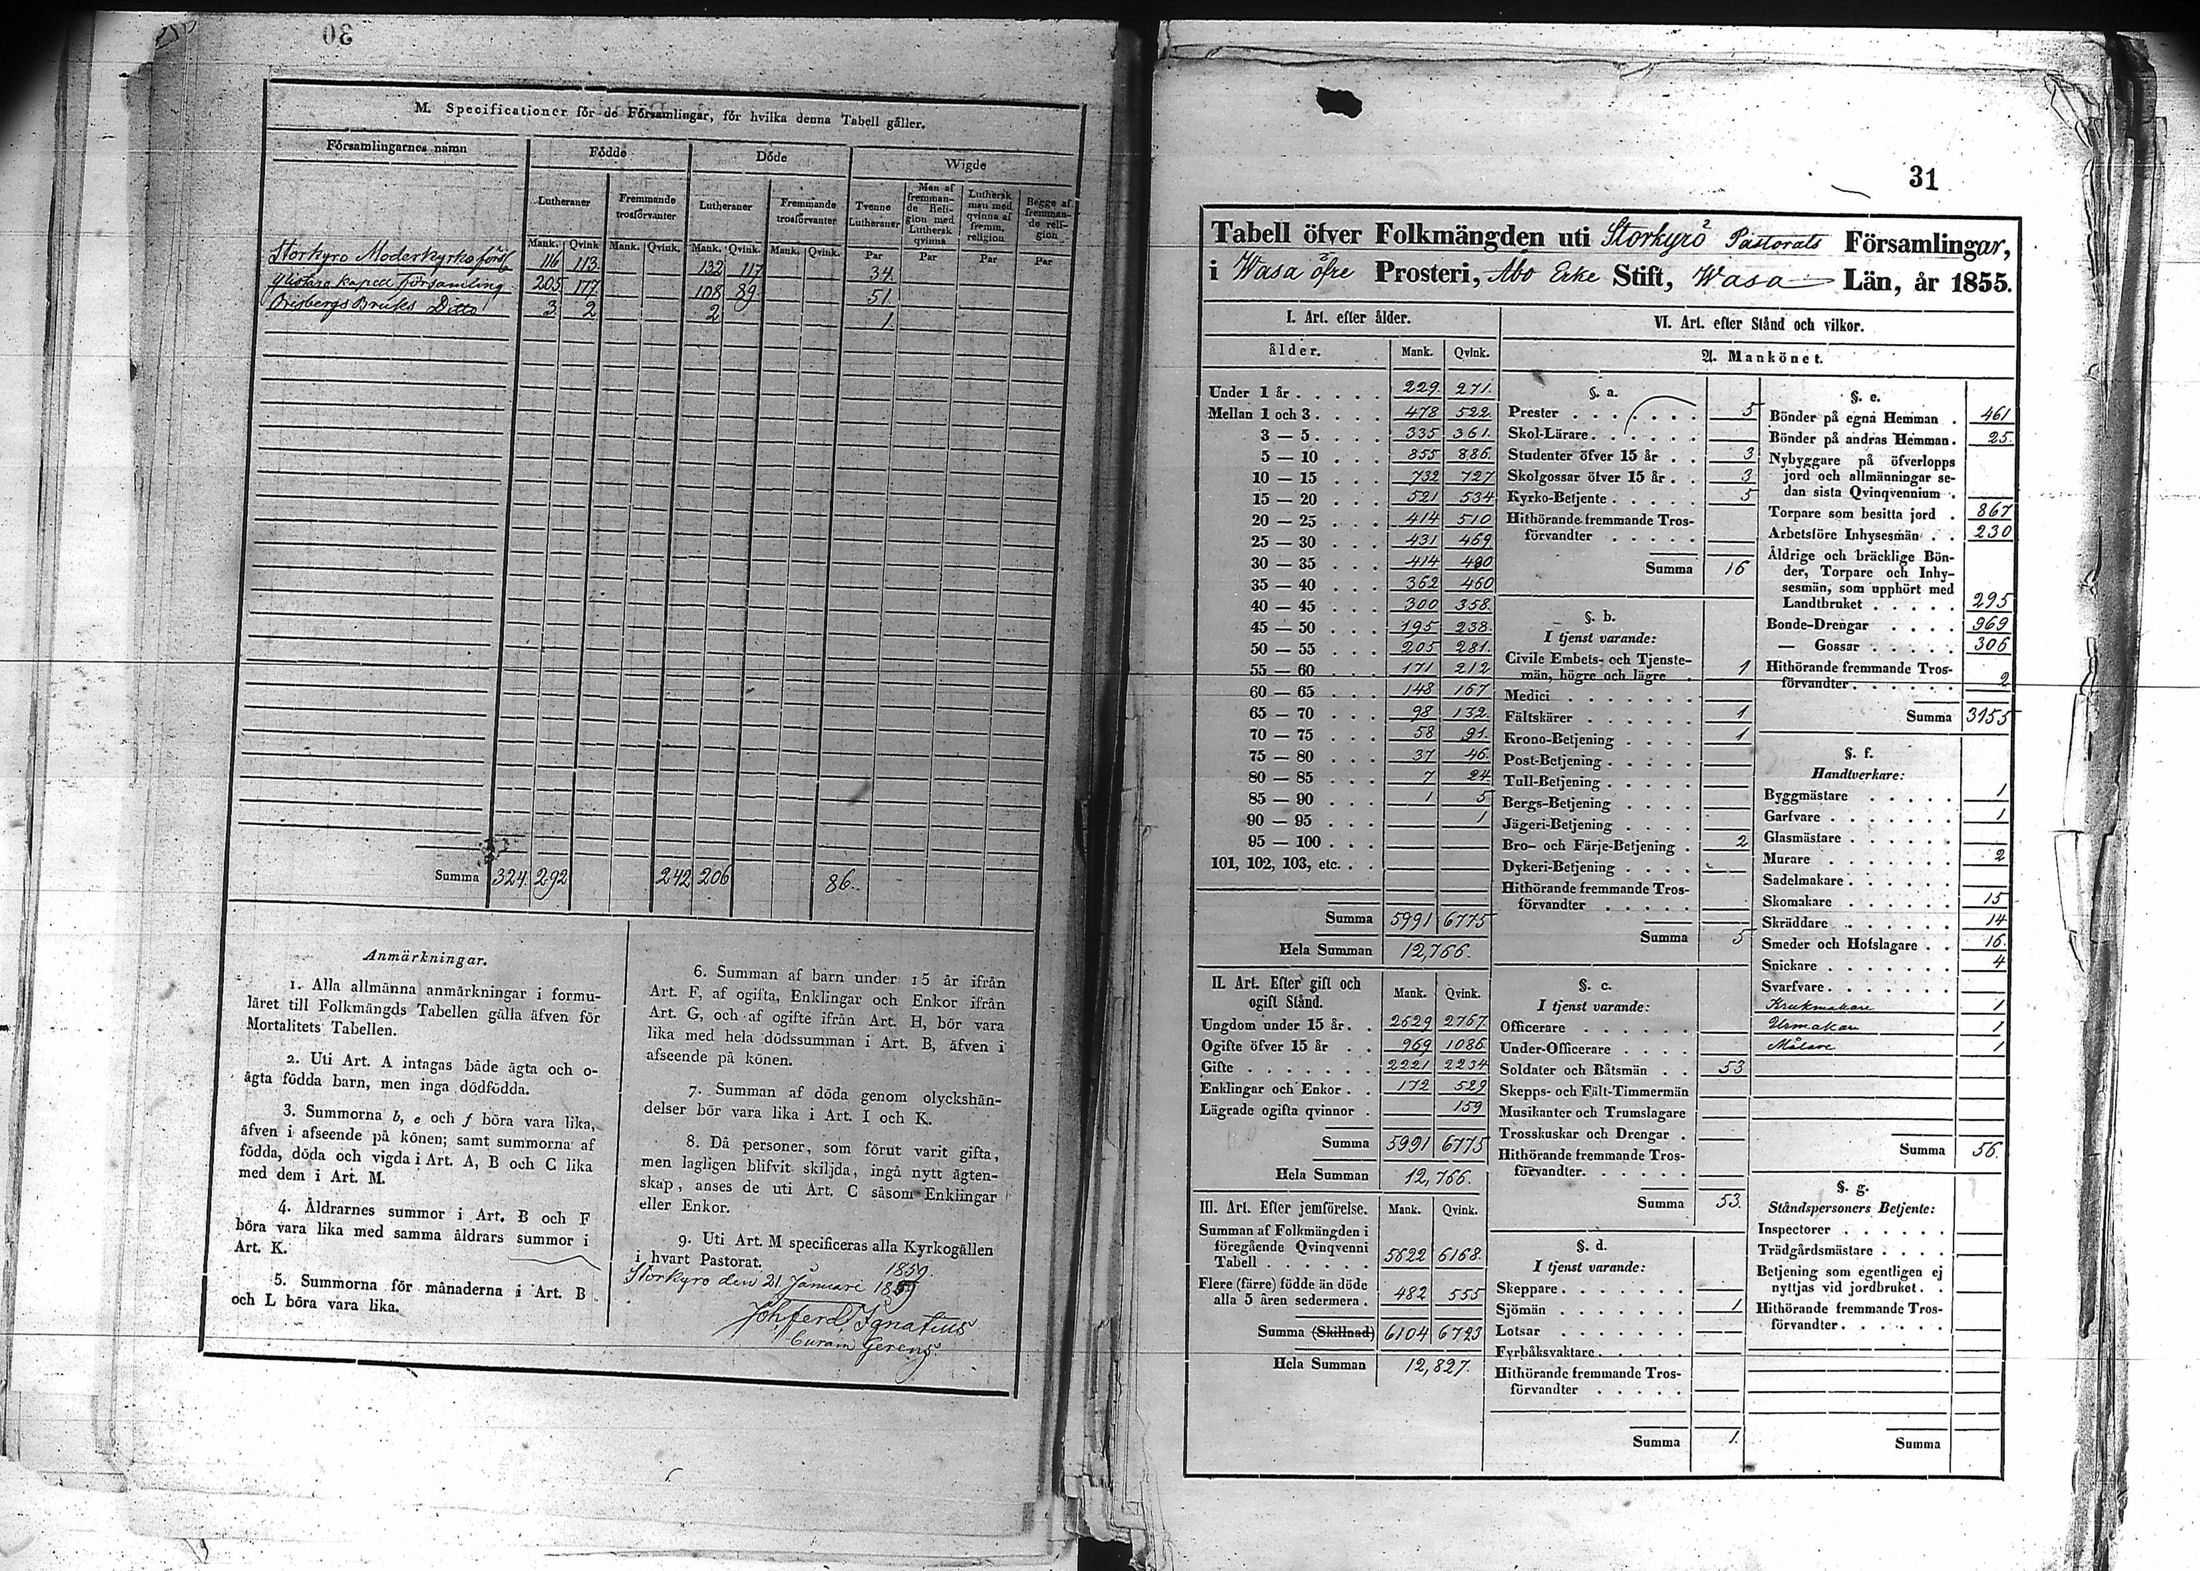 30
M. Specificationer för de Församlingar, för hvilka denna Tabell gäller.
Församlingarnes namn Födde Döde Wigde
Lutheraner Fremmande trosförvanter Lutheraner Fremmande trosförvanter Tvenne Lutheraner Man af fremmande Religion med Luthersk qvinna Luthersk man med qvinna af fremm. religion Begge af fremmande religion
Mank. Qvink Mank. Qvink. Mank. Qvink. Mank. Qvink. Par Par Par Par
Storkyro Moderkyrko förs 116 113 132 117 34
Ylistaro Kapell Församling 205 177 108 89 51
Orisbergs Bruks Ditto 3 2 2 1
Summa 324 292 242 206 86
Anmärkningar.
1. Alla allmänna anmärkningar i formu-
läret till Folkmängds Tabellen gälla äfven för
Mortalitets Tabellen.
2. Uti Art. A intagas både ägta och o-
ägta födda barn, men inga dödfödda.
3. Summorna b, e och f böra vara lika,
äfven i afseende på könen; samt summorna af
födda, döda och vigda i Art. A, B och C lika
med dem i Art. M.
4. Åldrarnes summor i Art. B och F
böra vara lika med samma åldrars summor i
Art. K.
5. Summorna för månaderna i Art. B
och L böra vara lika.
6. Summan af barn under 15 år ifrån
Art. F, af ogifta, Enklingar och Enkor ifrån
Art. G, och af ogifte ifrån Art. H, bör vara
lika med hela dödssumman i Art. B, äfven i
afseende på könen.
7. Summan af döda genom olyckshän-
delser bör vara lika i Art. I och K.
8. Då personer, som förut varit gifta,
men lagligen blifvit skiljda, ingå nytt ägten-
skap, anses de uti Art. C såsom Enklingar
eller Enkor.
9. Uti Art. M specificeras alla Kyrkogällen
i hvart Pastorat.
1859.
Storkyro den 21 Januari
Joh. Ferd. Ignatius
Curam Gerens
31
Tabell öfver Folkmängden uti Storkyrö Pastorats Församlingar,
i Wasa öfre Prosteri, Åbo Erke Stift, Wasa Län, år 1855.
I. Art. efter ålder.
ålder. Mank. Qvink.
Under 1 år 229 271
Mellan 1 och 3 478 522
3 — 5 335 361
5 — 10 855 886
10 — 15 732 727
15 — 20 521 534
20 — 25 414 510
25 — 30 431 469
30 — 35 414 480
35 — 40 362 460
40 — 45 300 358
45 — 50 195 238
50 — 55 205 281
55 — 60 171 212
60 — 65 148 167
65 — 70 98 132
70 — 75 58 91
75 — 80 37 46
80 — 85 7 24
85 — 90 1 5
90 — 95 1
95 — 100
101, 102, 103, etc.
Summa 5991 6775
Hela Summan 12,766.
II. Art. Efter gift och
ogift Stånd. Mank. Qvink.
Ungdom under 15 år 2629 2767
Ogifte öfver 15 år 969 1086
Gifte 2221 2234
Enklingar och Enkor 172 529
Lägrade ogifta qvinnor 159
Summa 5991 6775
Hela Summan 12,766.
III. Art. Efter jemförelse. Mank. Qvink.
Summan af Folkmängden i
föregående Qvinqvenni
Tabell 5622 6168
Flere (färre) födde än döde
alla 5 åren sedermera 482 555
Summa (Skillnad) 6104 6723
Hela Summan 12,827.
VI. Art. efter Stånd och vilkor.
A. Mankönet.
§. a.
Prester 5
Skol-Lärare
Studenter öfver 15 år 3
Skolgossar öfver 15 år 3
Kyrko-Betjente 5
Hithörande fremmande Tros-
förvandter
Summa 16
§. b.
I tjenst varande:
Civile Embets- och Tjenste-
män, högre och lägre 1
Medici
Fältskärer 1
Krono-Betjening 1
Post-Betjening
Tull-Betjening
Bergs-Betjening
Jägeri-Betjening
Bro- och Färje-Betjening 2
Dykeri-Betjening
Hithörande fremmande Tros-
förvandter
Summa 5
§. c.
I tjenst varande:
Officerare
Under-Officerare
Soldater och Båtsmän 53
Skepps- och Fält-Timmermän
Musikanter och Trumslagare
Trosskuskar och Drengar
Hithörande fremmande Tros-
förvandter
Summa 53.
§. d.
I tjenst varande:
Skeppare
Sjömän 1
Lotsar
Fyrbåksvaktare
Hithörande fremmande Tros-
förvandter
Summa 1.
§. e.
Bönder på egna Hemman 461
Bönder på andras Hemman 25
Nybyggare på öfverlopps
jord och allmänningar se-
dan sista Qvinqvennium
Torpare som besitta jord 867
Arbetsföre Inhysesmän 230
Åldrige och bräcklige Bön-
der, Torpare och Inhy-
sesmän, som upphört med
Landtbruket 295
Bonde-Drengar 969
— Gossar 306
Hithörande fremmande Tros-
förvandter 2
Summa 3155
§. f.
Handtverkare:
Byggmästare 1
Garfvare 1
Glasmästare
Murare 2
Sadelmakare
Skomakare 15
Skräddare 14
Smeder och Hofslagare 16
Snickare 4
Svarfvare
Krukmakare 1
Urmakare 1
Målare 1
Summa 56.
§. g.
Ståndspersoners Betjente:
Inspectorer
Trädgårdsmästare
Betjening som egentligen ej
nyttjas vid jordbruket
Hithörande fremmande Tros-
förvandter
Summa